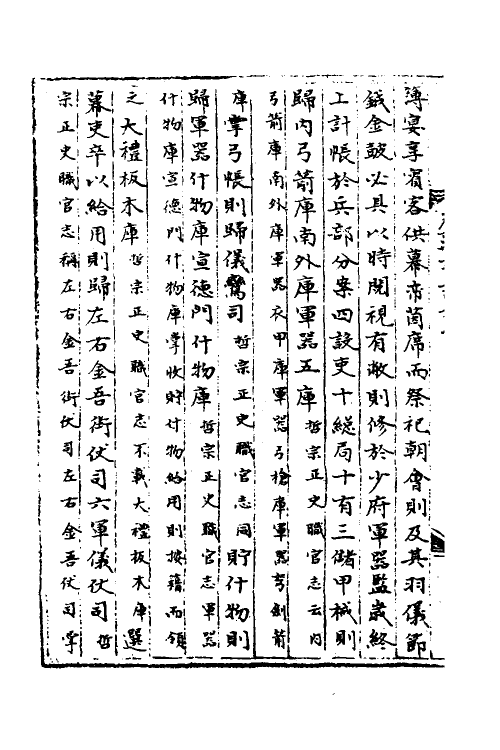 簿宴享賓客供幕帝茵席而祭祀朝會則及其羽儀節
鉞金鼓必具以時閱視有敝則修於少府軍器監歲終
上計帳於兵部分案四設吏十總局十有三儲甲械則
歸內弓箭庫南外庫軍器五庫哲宗正史職官志云內
弓箭庫南外庫軍器衣甲庫軍器弓槍庫軍器弩劍箭
庫掌弓帳則歸儀鸞司哲宗正史職官志同貯什物則
歸軍器什物庫宣德門什物庫哲宗正史職官志軍器
什物庫宣德門什物庫掌收貯什物給用則按籍而頒
之大禮板木庫哲宗正史職官志不載大禮板木庫選
募吏卒以給用則歸左右金吾街仗司六軍儀仗司哲
宗正史職官志稱左右金吾街仗司左右金吾仗司掌